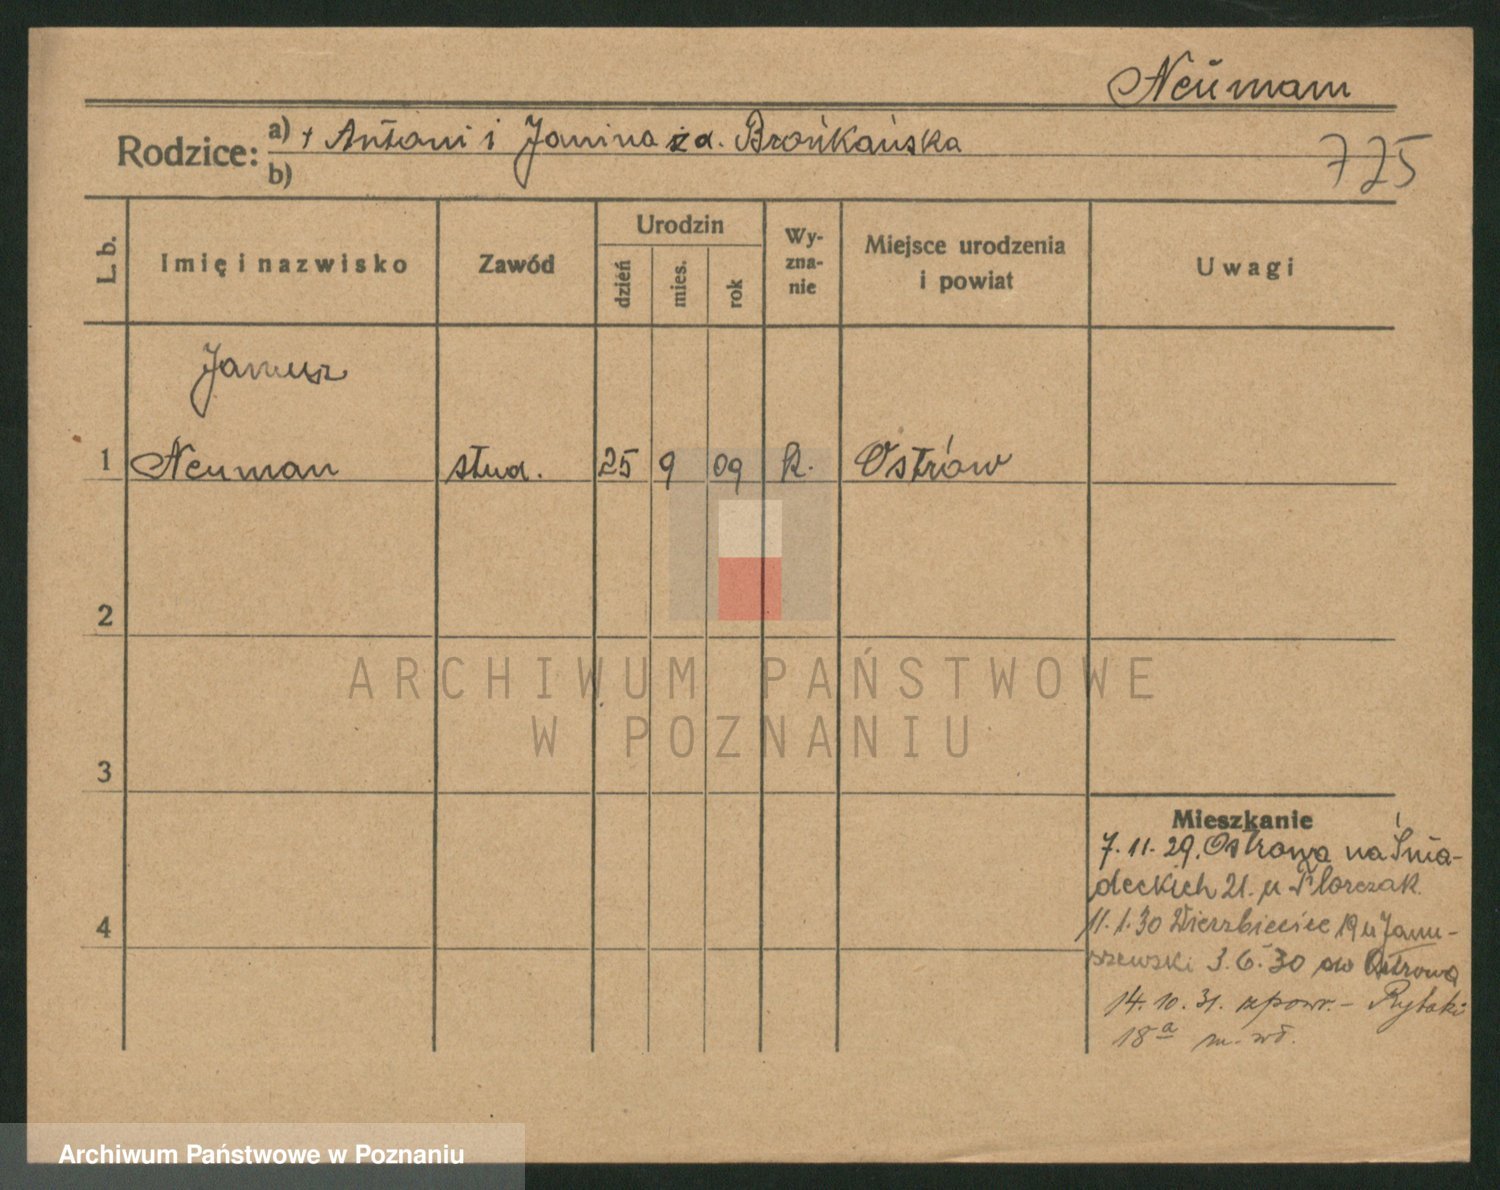 Neuman
Rodzice: a) + Antoni i Janina z d. Brońkańska
b)
725
L. b.
Imię i nazwisko
Zawód
Urodzin
dzień
mies.
rok
Wy-
zna-
nie
Miejsce urodzenia
i powiat
Uwagi
Janusz
1 Neuman stud. 25 9 09 R. Ostrów
2
ARCHIWUM PAŃSTWOWE
W POZNANIU
3
Mieszkanie
7.11.29. Ostrowa na Śnia-
deckich 21. u Florczak.
4
11.1.30 Wierzbięcice 19 u Janu-
szewski 3.6.30 do Ostrowa
14.10.31. zpowr. - Rybaki
18a m. wł.
Archiwum Państwowe w Poznaniu